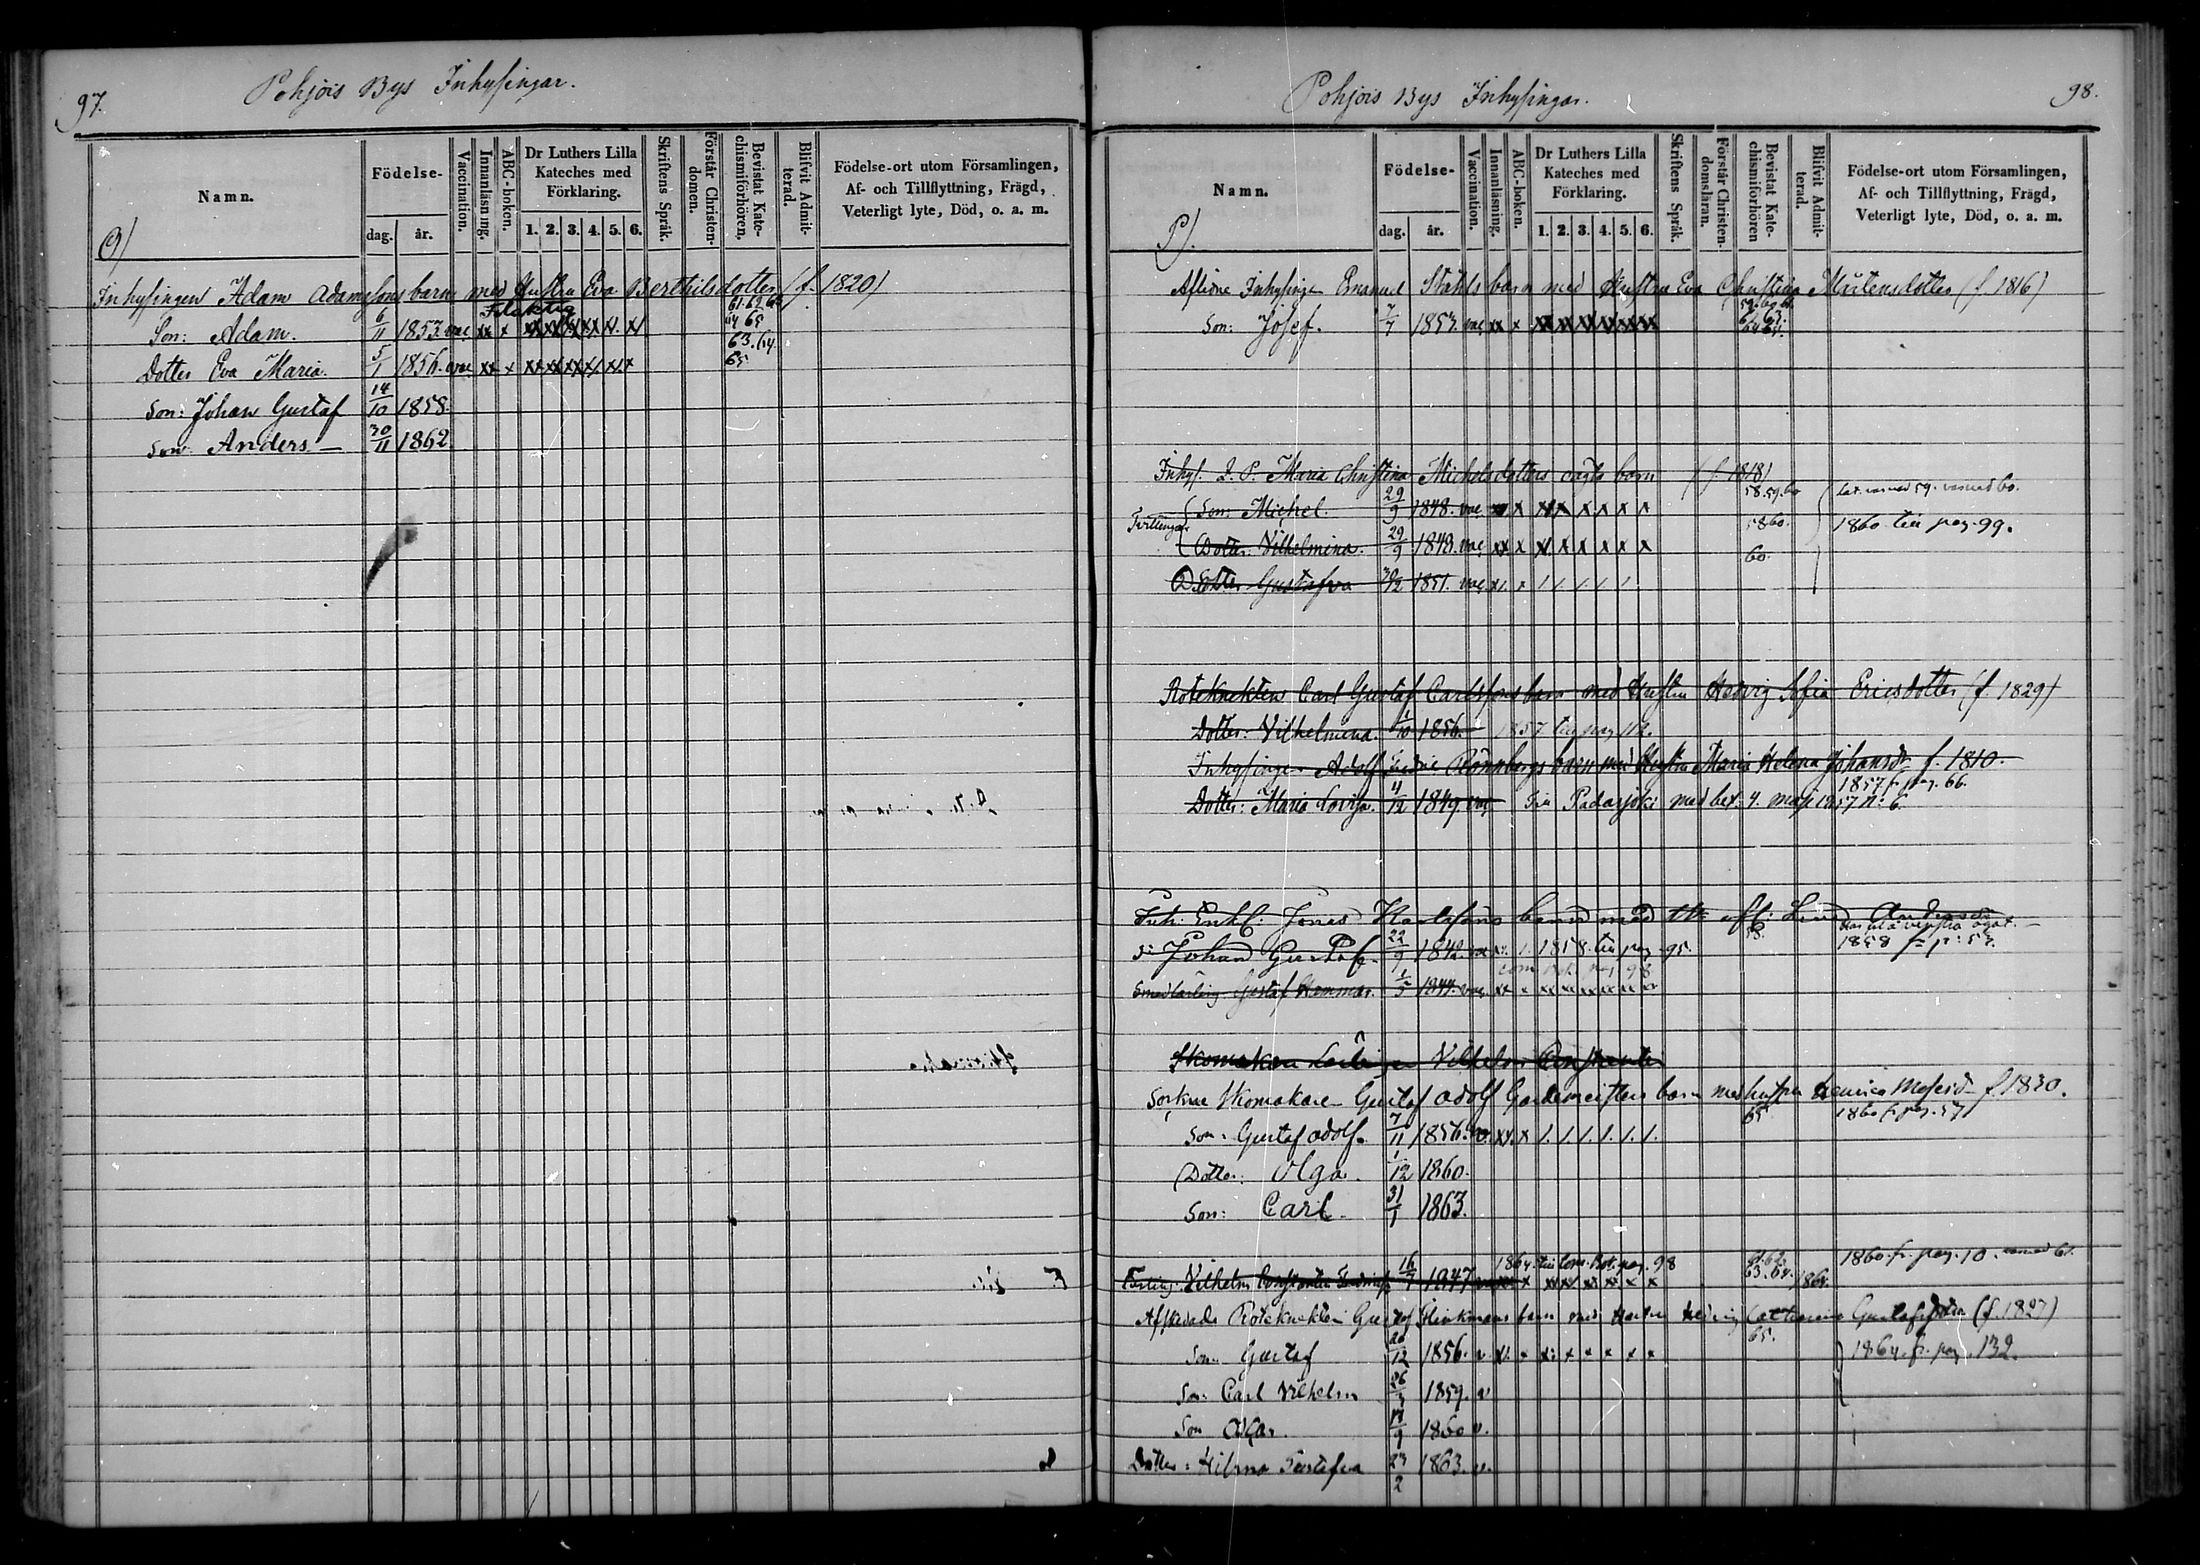 97.
Pohjois Bys Inhysingar.
Namn.
Födelse-
dag. år.
Vaccination.
Innanläsning.
ABC-boken.
Dr Luthers Lilla Kateches med Förklaring.
1. 2. 3. 4. 5. 6.
Skriftens Språk.
Förstår Christendomen.
Bevistat Katechismiförhören,
Blifvit Admitterad.
Födelse-ort utom Församlingen, Af- och Tillflyttning, Frägd, Veterligt lyte, Död, o. a. m.
O)
Inhysingen Adam Adamssons barn med Hustru Eva Berthilsdotter (f. 1820)
Son: Adam. 6/11 1853. vac. xx x
Dotter Eva Maria. 5/1 1856. vac. xx x 63. 64. 65.
Son: Johan Gustaf 14/10 1858.
Son Anders 30/11 1862.
98.
Pohjois Bys Inhysingar.
Namn.
Födelse-
dag. år.
Vaccination.
Innanläsning.
ABC-boken.
Dr Luthers Lilla Kateches med Förklaring.
1. 2. 3. 4. 5. 6.
Skriftens Språk.
Förstår Christendomsläran.
Bevistat Katechismiförhören
Blifvit Admitterad.
Födelse-ort utom Församlingen, Af- och Tillflyttning, Frägd, Veterligt lyte, Död, o. a. m.
P).
Aflidne Inhysingen Emanuel Ståhls barn med Hustru Eva Christina Mårtensdotter (f. 1816)
Son: Josef. 7/7 1853. vac. xx x
Inhys. Q. P. Maria Christina Michelsdotters oägta barn (f. 1818)
Tvillingar
Son: Michel. 29/9 1848. vac. x x x x x x 58. 59. 60
Dotter: Vilhelmina. 29/9 1848. vac. xx x x x x x x x 58 60. 1860 till pag. 99.
Dotter Gustafva 1851. vac. x 1. 1. 1. 1. 1. 60.
Roteknekten Carl Gustaf Carlssons barn med Hustru Hedvig Sofia Ericsdotter (f. 1829)
Dotter: Vilhelmina. 1/10 1856. 1857 till pag 112.
Inhysingen Adolf Fredric Rönnbergs barn med Hustru Maria Helena Johansd. f. 1810.
1857 fr. pag. 66.
Dotter: Maria Lovisa. 4/12 1849. vac. Till Padasjoki med bet. 4. maji 1857 N: 6.
Inh. Enkl: Jonas Karlssons barn med afl: Andersd:
1858 fr p: 53.
S: Johan Gustaf. 22/9 1842. 1. 1858 till pag. 95.
Smedlärling Gustaf Hammar. 1/5 1844. vac. xx x xx xx xx xx xx xx
Skomakare Lärlingen Vilhelm Constantin
Sockne Skomakare Gustaf Adolf Gardemeisters barn med hustru Henrica Mosesd. f. 1830.
65 1860 fr. pag. 57
Son: Gustaf Adolf. 7/11 1856. v. xx. x 1. 1. 1. 1. 1. 1.
Dotter: Olga. 1/12 1860.
Son: Carl. 31/1 1863.
1864 till Com. Bok. pag. 98 1860. fr. pag. 10.
Lärling. Vilhelm Constantin 16/7 1847 63. 64. 1864.
Afskedade Rotknekten Gustaf Flinkmans barn med Hustru Hedvig Catharina Gustafsdotter (f. 1827)
Son: Gustaf 26/12 1856. v x. x x. x x x x x 65. 1864. fr. pag. 132.
Son: Carl Vilhelm 1859. v
Son Oskar. 1860 v.
Dotter: Hilma Gustafva 23/2 1863. v.